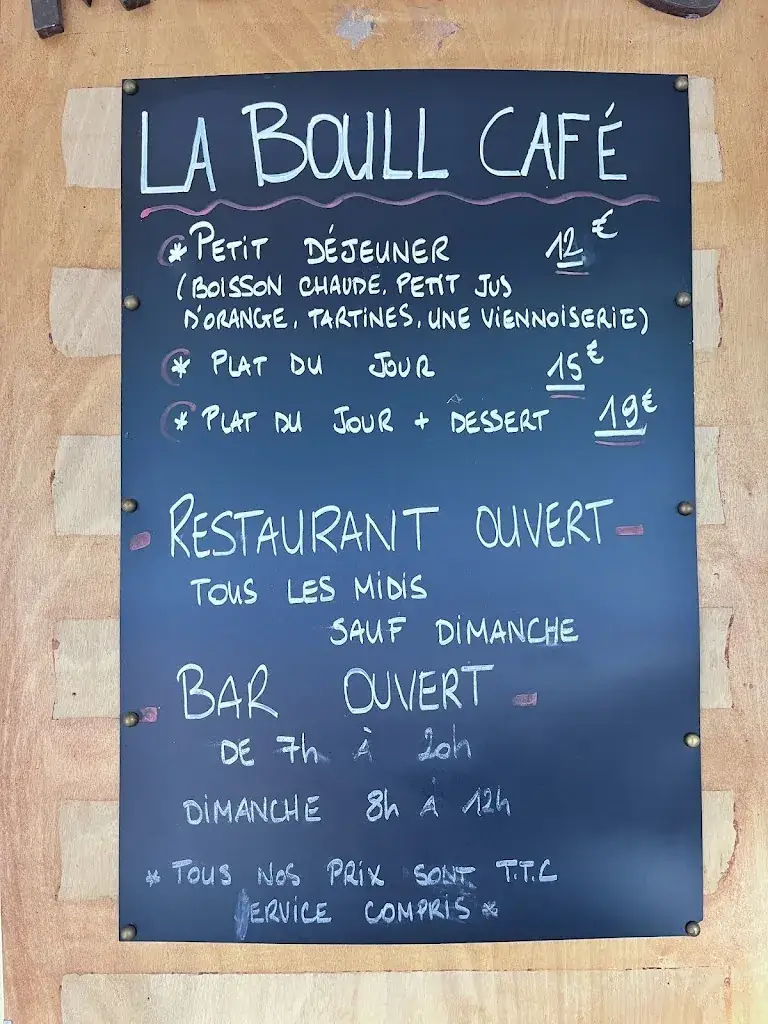 LA BOULL CAFÉ
* PETIT DÉJEUNER 12€
(BOISSON CHAUDE, PETIT JUS
D'ORANGE, TARTINES, UNE VIENNOISERIE)
* PLAT DU JOUR 15€
* PLAT DU JOUR + DESSERT 19€
- RESTAURANT OUVERT -
TOUS LES MIDIS
SAUF DIMANCHE
- BAR OUVERT -
DE 7h À 20h
DIMANCHE 8h À 12h
* TOUS NOS PRIX SONT T.T.C
SERVICE COMPRIS *